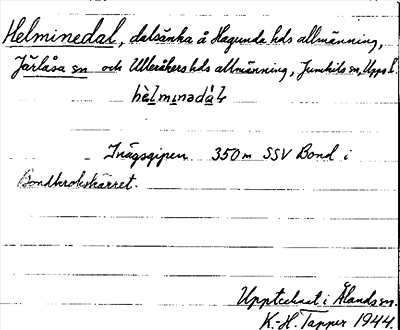 Helminedal, dalsänka å Hagunda hds allmänning,
Järlåsa sn och Ulleråkers hds allmänning, Jumkils sn, Upps. l.
hèlminədá·l
350 m SSV Bond i
Bondkrokskärret.
Upptecknat i Ålands sn.
K.-H. Tapper 1944.